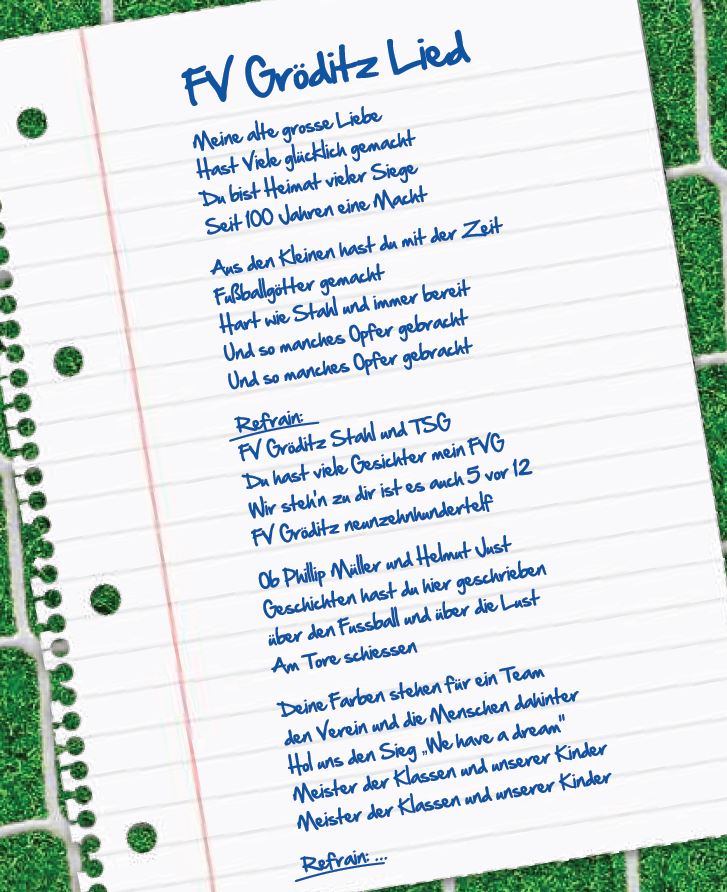 FV Gröditz Lied
Meine alte grosse Liebe
Hast Viele glücklich gemacht
Du bist Heimat vieler Siege
Seit 100 Jahren eine Macht
Aus den Kleinen hast du mit der Zeit
Fußballgötter gemacht
Hart wie Stahl und immer bereit
Und so manches Opfer gebracht
Und so manches Opfer gebracht
Refrain:
FV Gröditz Stahl und TSG
Du hast viele Gesichter mein FVG
Wir steh'n zu dir ist es auch 5 vor 12
FV Gröditz neunzehnhundertelf
Ob Phillip Müller und Helmut Just
Geschichten hast du hier geschrieben
über den Fussball und über die Lust
Am Tore schiessen
Deine Farben stehen für ein Team
den Verein und die Menschen dahinter
Hol uns den Sieg „We have a dream"
Meister der Klassen und unserer Kinder
Meister der Klassen und unserer Kinder
Refrain: ...